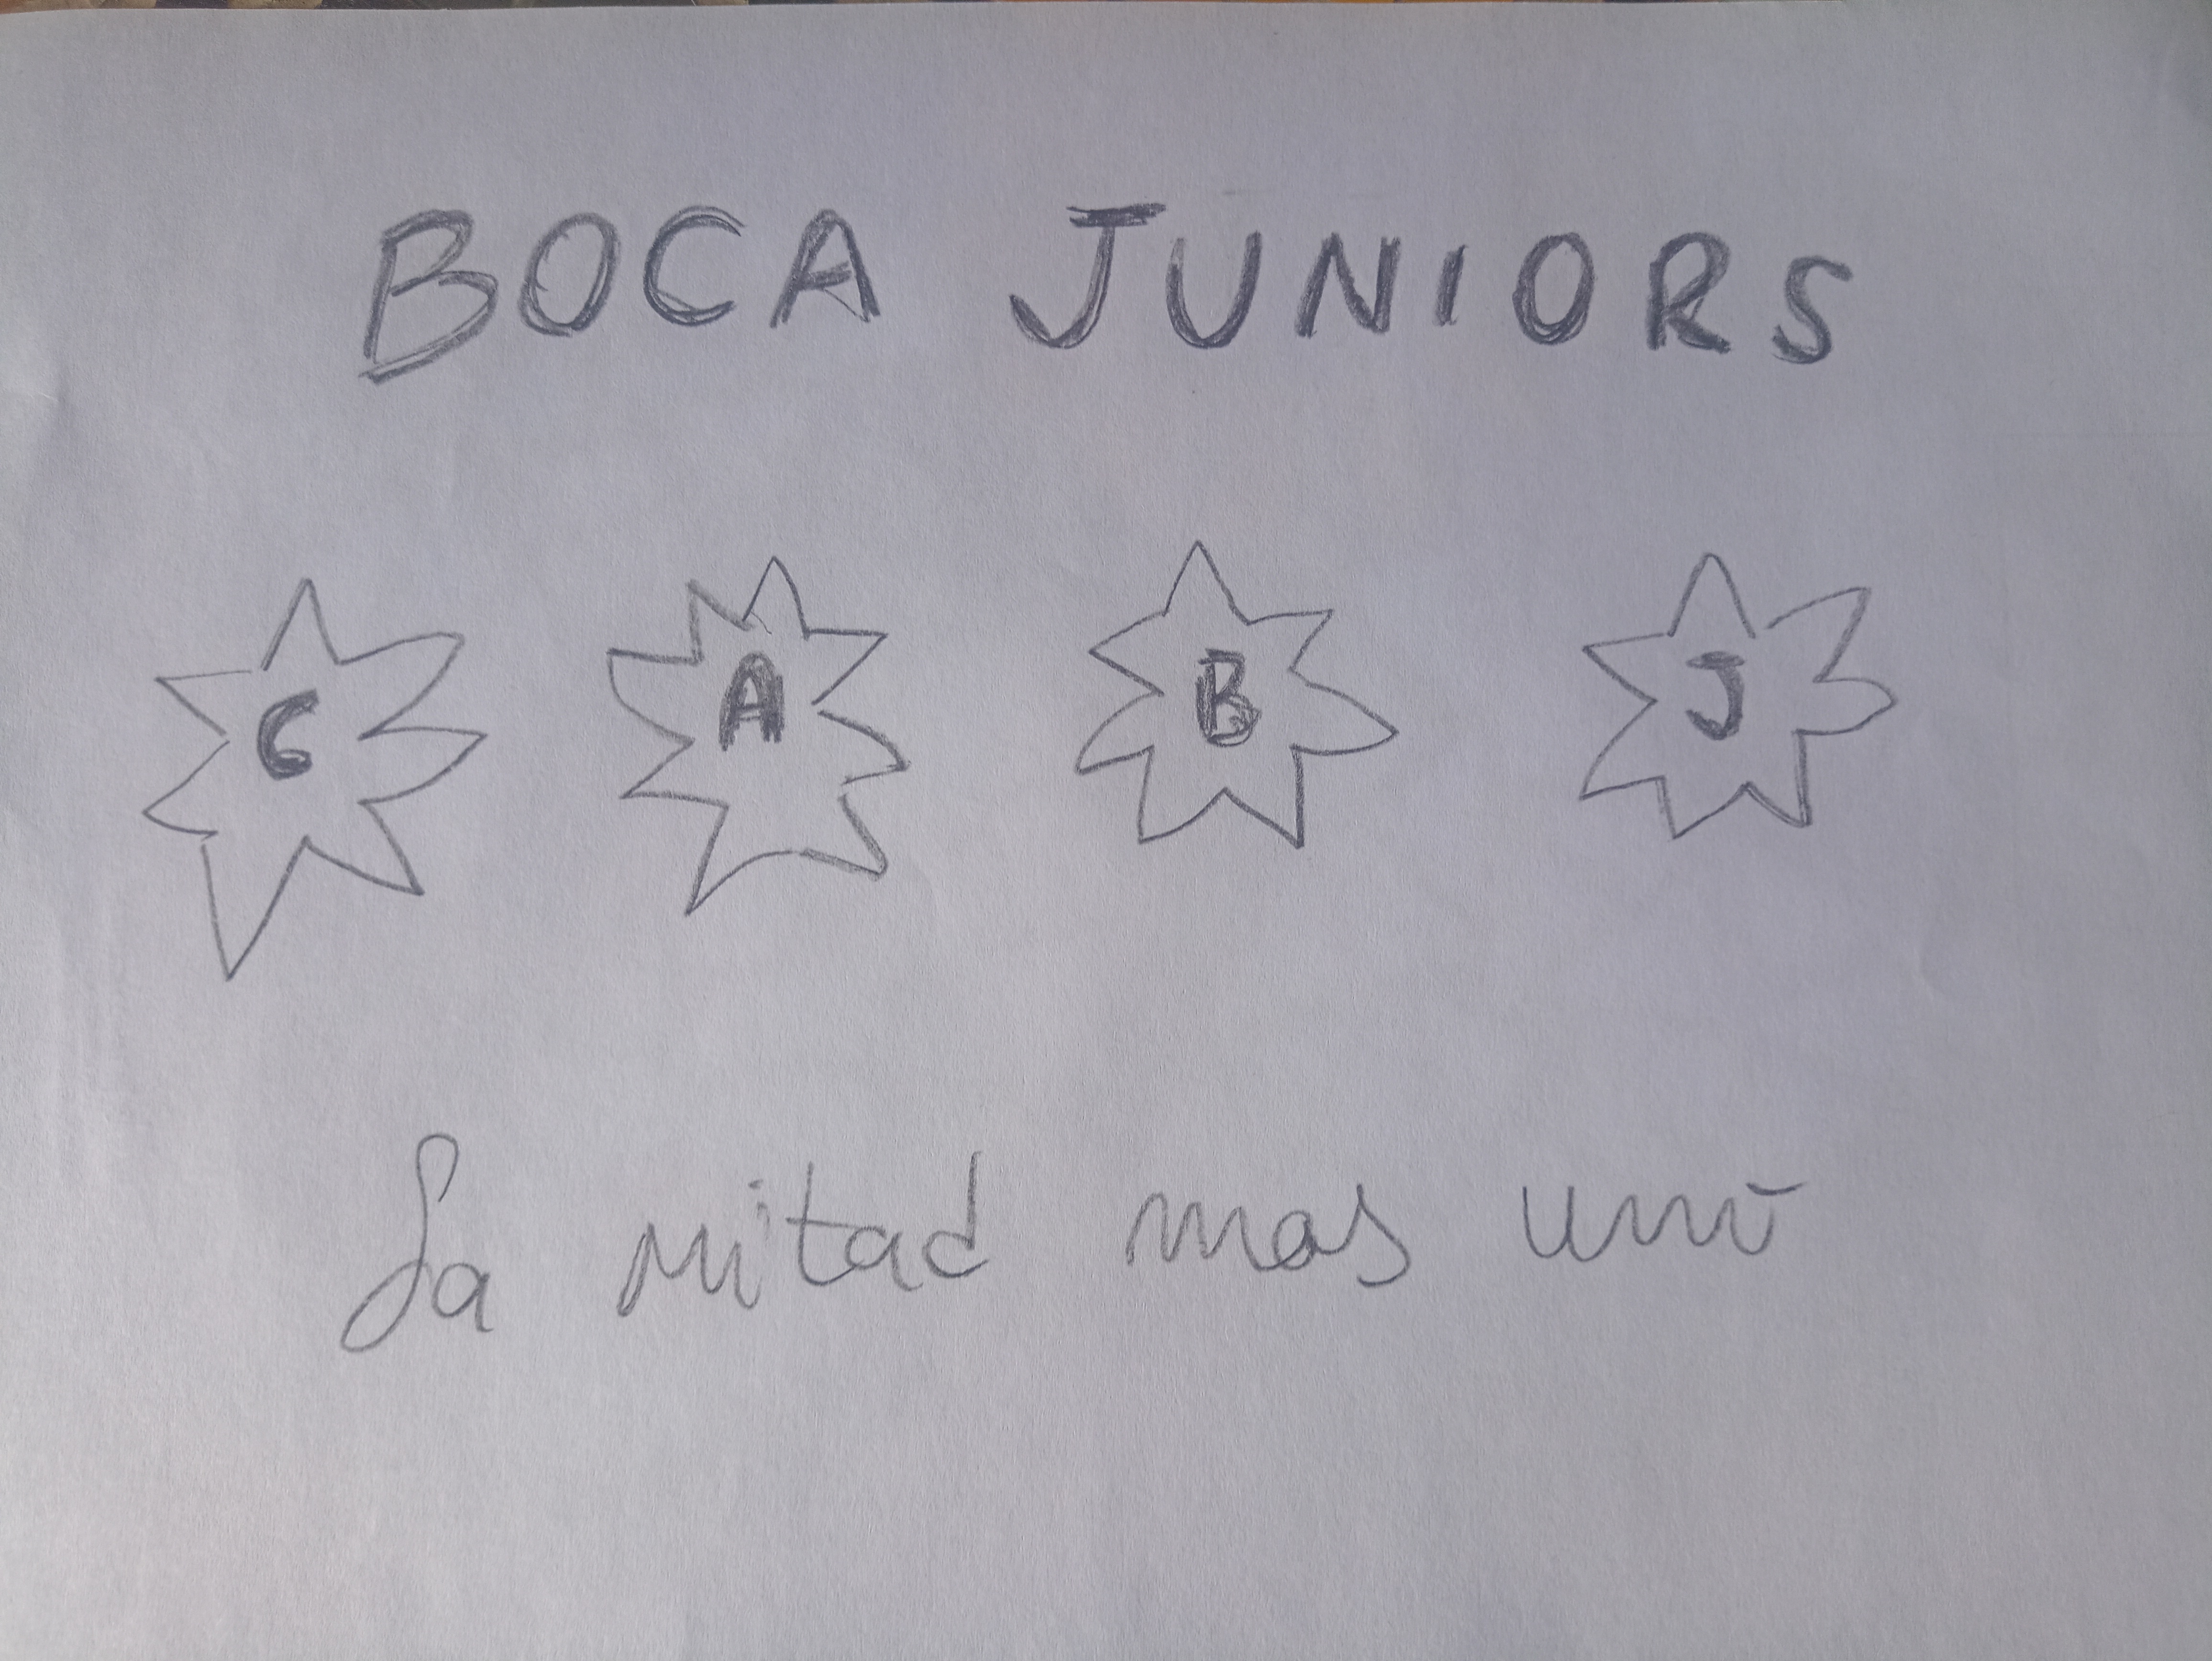 BOCA JUNIORS
C A B J
La mitad mas uno